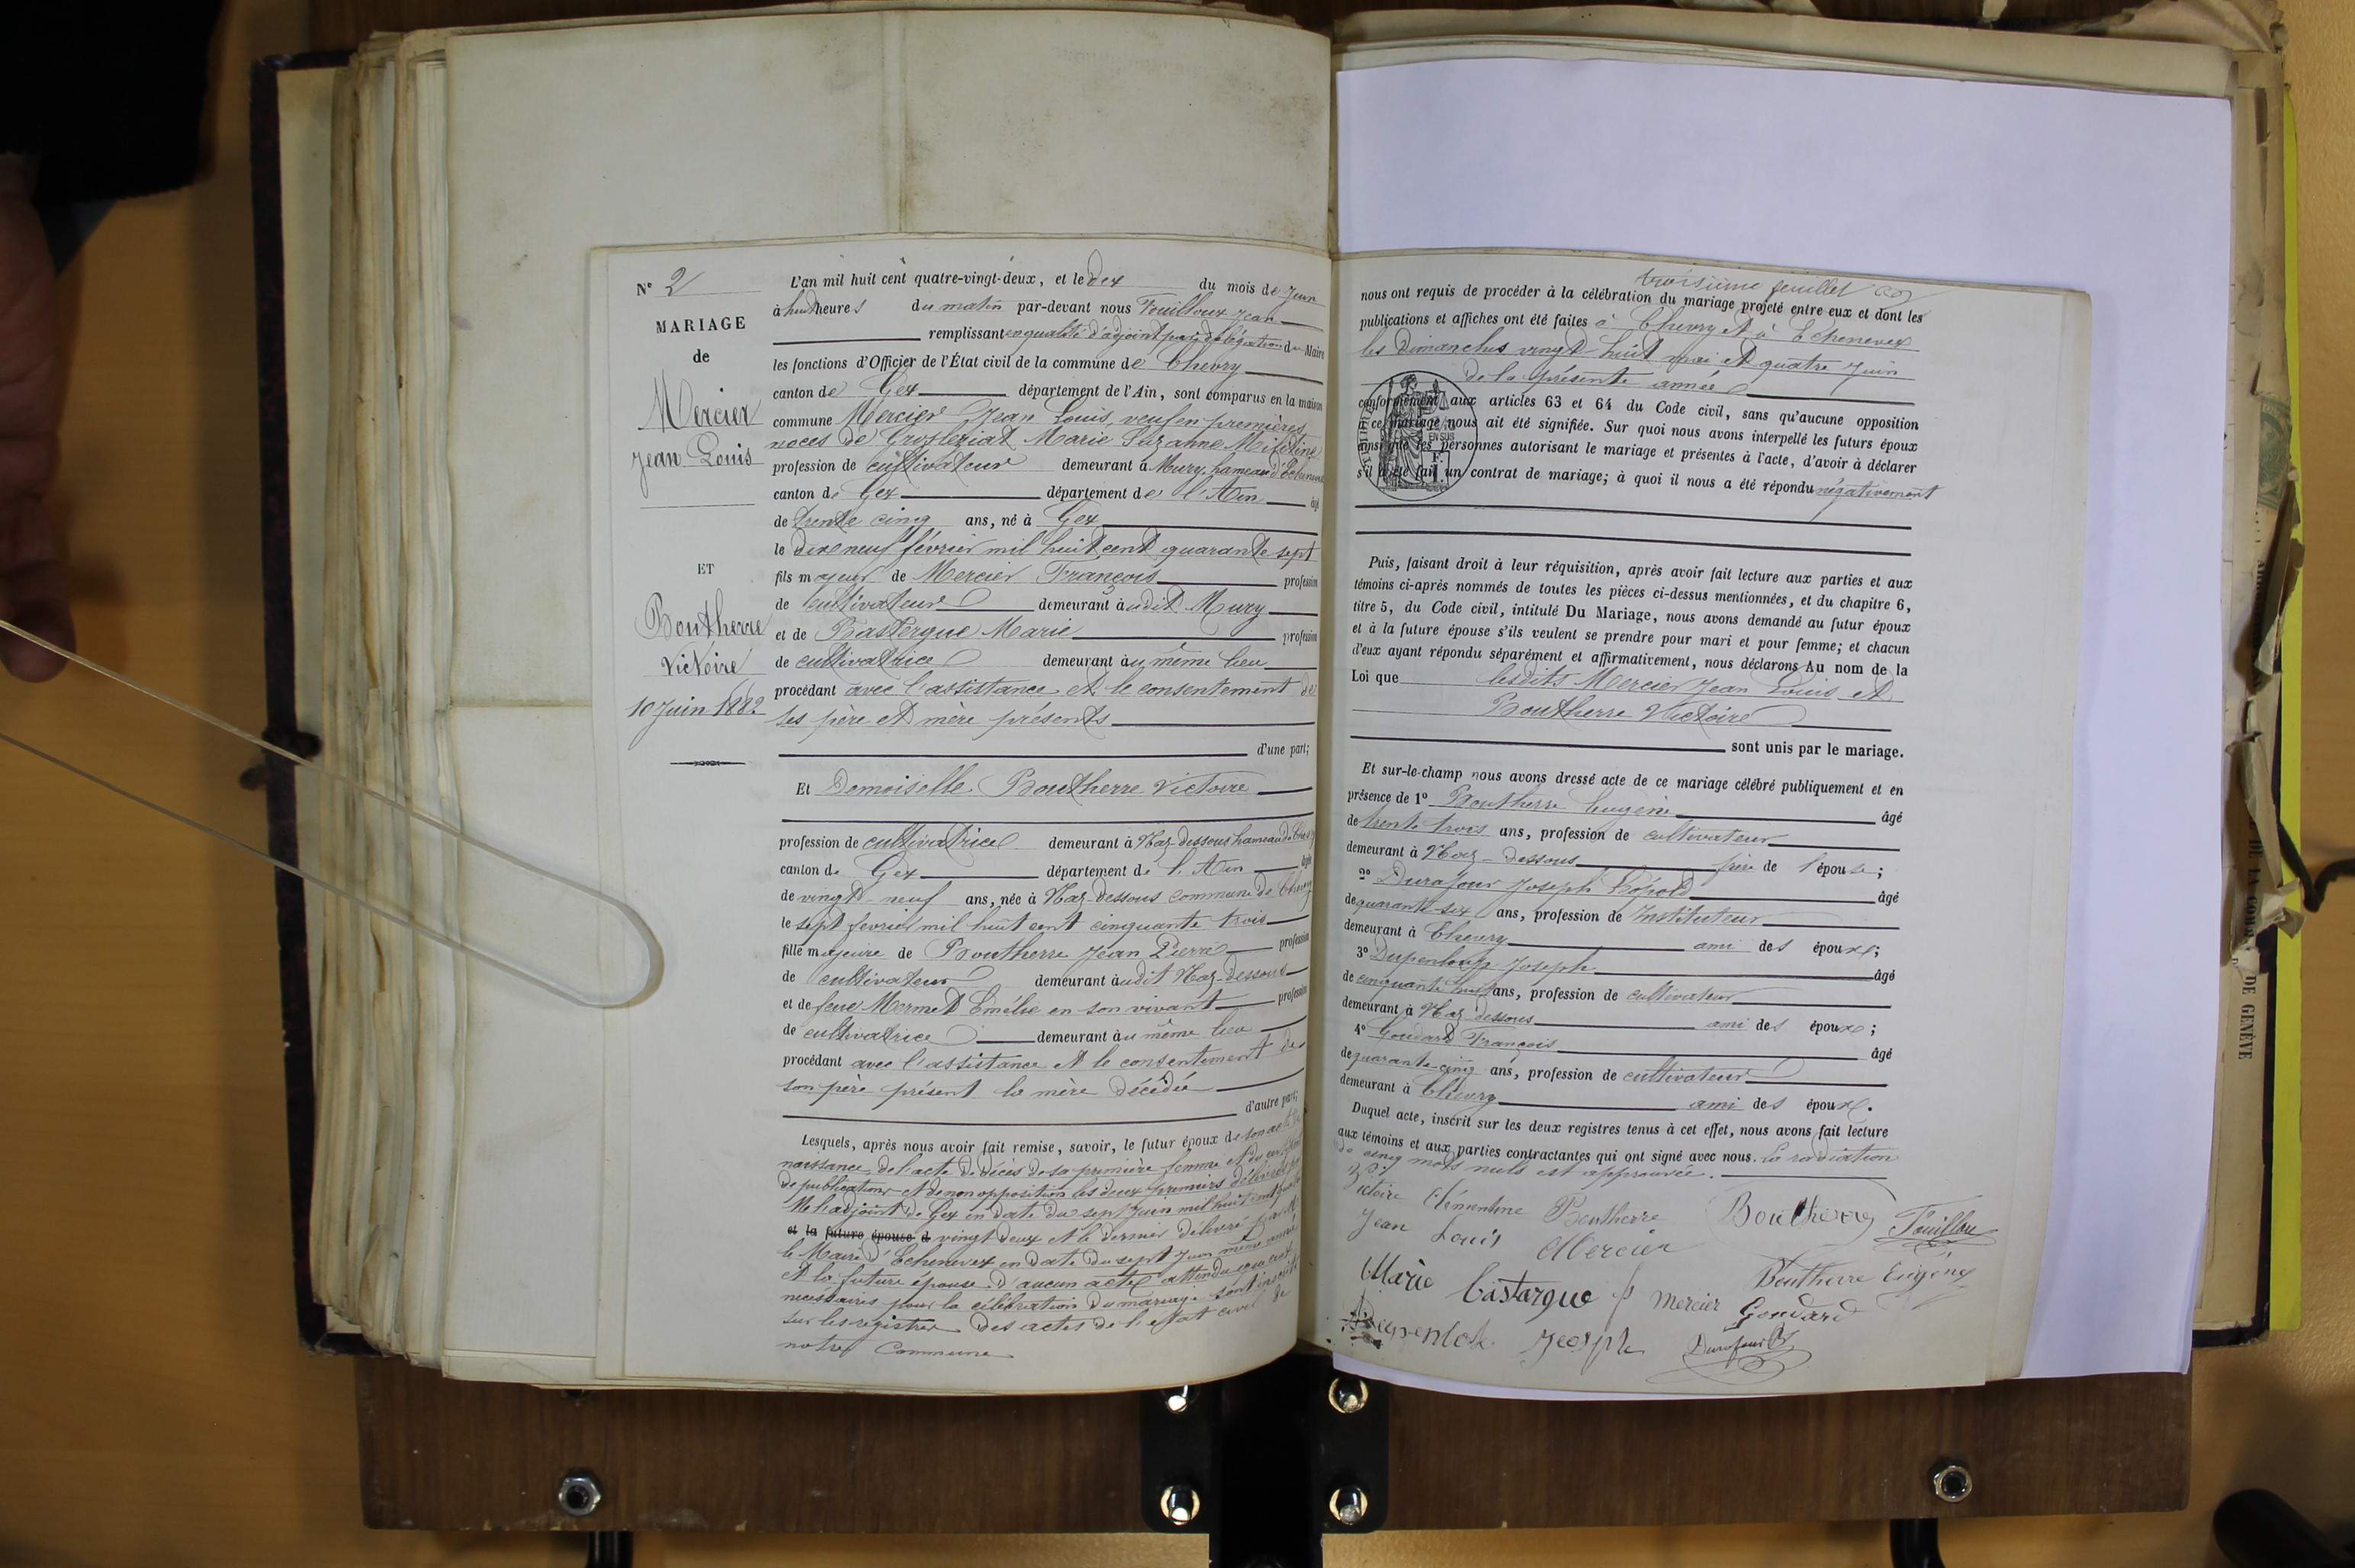 N° 2
MARIAGE
de
Mercier
Jean Louis
ET
Boutherre
Victoire
10 Juin 1882
L'an mil huit cent quatre-vingt-deux, et le dix du mois de Juin
à huit heures du matin par-devant nous Fouilloux Jean
remplissant en qualité d'adjoint par délégation du Maire
les fonctions d'Officier de l'État civil de la commune de Chevry
canton de Gex département de l'Ain, sont comparus en la maison
commune Mercier Jean Louis, veuf en premières
noces de Marie Suzanne
profession de cultivateur demeurant à Mury, hameau d'Echenevex
canton de Gex département de l'Ain âgé
de trente cinq ans, né à Gex
le dix neuf février mil huit cent quarante sept
fils majeur de Mercier François profession
de cultivateur demeurant audit Mury
et de Castergue Marie profession
de cultivatrice demeurant au même lieu
procédant avec l'assistance et le consentement de
ses père et mère présents
d'une part;
Et Demoiselle Boutherre Victoire
profession de cultivatrice demeurant à Naz-dessous hameau de Chevry
canton de Gex département de l'Ain âgée
de vingt-neuf ans, née à Naz-dessous commune de Chevry
le sept fevrier mil huit cent cinquante trois
fille majeure de Boutherre Jean Pierre profession
de cultivateur demeurant audit Naz-dessous
et de feue Mermet Emélie en son vivant profession
de cultivatrice demeurant au même lieu
procédant avec l'assistance et le consentement de
son père présent la mère décédée
d'autre part;
Lesquels, après nous avoir fait remise, savoir, le futur époux de son acte de
naissance, de l'acte de décès de sa première femme et du certificat
de publications et de non opposition les deux premiers délivrés par
Mr l'adjoint de Gex en date du sept Juin mil huit cent quatre
et la future épouse d vingt deux et le dernier délivré par Mr
le Maire d'Echenevex en date du sept Juin même année
et la future épouse d'aucun acte attendu que ceux
necessaires pour la célébration du mariage sont inscrits
sur les registres des actes de l'etat civil de
notre Commune
troisième feuillet
nous ont requis de procéder à la célébration du mariage projeté entre eux et dont les
publications et affiches ont été faites à Chevry et à Echenevex
les Dimanches vingt-huit mai et quatre Juin
de la présente année
conformément aux articles 63 et 64 du Code civil, sans qu'aucune opposition
à ce mariage nous ait été signifiée. Sur quoi nous avons interpellé les futurs époux
ainsi que les personnes autorisant le mariage et présentes à l'acte, d'avoir à déclarer
s'il a été fait un contrat de mariage; à quoi il nous a été répondu négativement
Puis, faisant droit à leur réquisition, après avoir fait lecture aux parties et aux
témoins ci-après nommés de toutes les pièces ci-dessus mentionnées, et du chapitre 6,
titre 5, du Code civil, intitulé Du Mariage, nous avons demandé au futur époux
et à la future épouse s'ils veulent se prendre pour mari et pour femme; et chacun
d'eux ayant répondu séparément et affirmativement, nous déclarons Au nom de la
Loi que lesdits Mercier Jean Louis et
Boutherre Victoire
sont unis par le mariage.
Et sur-le-champ nous avons dressé acte de ce mariage célébré publiquement et en
présence de 1° Boutherre Eugène âgé
de trente trois ans, profession de cultivateur
demeurant à Naz-dessous frère de l'épouse;
2° Durafour Joseph Léopold âgé
de quarante-six ans, profession de Instituteur
demeurant à Chevry ami des époux;
3° Dupenloup Joseph âgé
de cinquante huit ans, profession de cultivateur
demeurant à Naz dessous ami des époux;
4° Goudard François âgé
de quarante-cinq ans, profession de cultivateur
demeurant à Chevry ami des époux.
Duquel acte, inscrit sur les deux registres tenus à cet effet, nous avons fait lecture
aux témoins et aux parties contractantes qui ont signé avec nous. La radiation
de cinq mots nuls est approuvée.
Victoire Clémentine Boutherre Boutherre Fouilloux
Jean Louis Mercier
Marie Castargue f Mercier Boutherre Eugène
Goudard
Dupenlok Joseph Durafour
DE GENÈVE